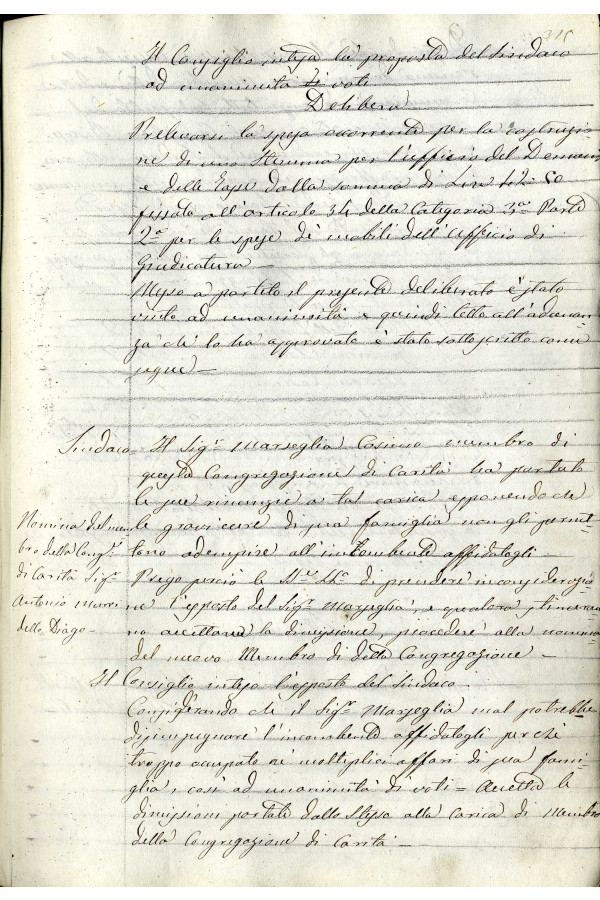 315
Il Consiglio intesa la proposta del Sindaco
ad unanimità di voti
Delibera
Prelevarsi la spesa occorrente per la costruzio
ne di uno Stemma per l'ufficio del Demanio
e delle Tasse dalla somma di Lire 42 50
fissato all'articolo 34 della Categoria 3a Parte
2a per le spese di mobili dell'Ufficio di
Giudicatura —
Messo a partito il presente deliberato è stato
vinto ad unanimità e quindi letto all'adunan
za che lo ha approvato è stato sottoscritto come
segue —
Sindaco — Il Sigr Marseglia Cosimo membro di
questa Congregazione di Carità ha portato
le sue rinunzie a tal carica esponendo che
le gravi cure di sua famiglia non gli permet
tono adempire all'incombente affidatogli —
Prego perciò le SS.e LL.e di prendere in considerazio
ne l'esposto del Sigr Marseglia, e qualora stimeran
no accettare la dimissione, procedere alla nomina
del nuovo Membro di detta Congregazione —
Nomina del mem
bro della Congne
di Carità Sigr
Antonio
detto Diago —
Il Consiglio intesa l'esposto del Sindaco
Considerando che il Sigr Marseglia mal potrebbe
disimpegnare l'incombente affidatogli perchè
troppo occupato ne' moltiplici affari di sua fami
glia, così ad unanimità di voti = Accetta le
dimissioni portate dallo Stesso alla carica di Membro
della Congregazione di Carità —